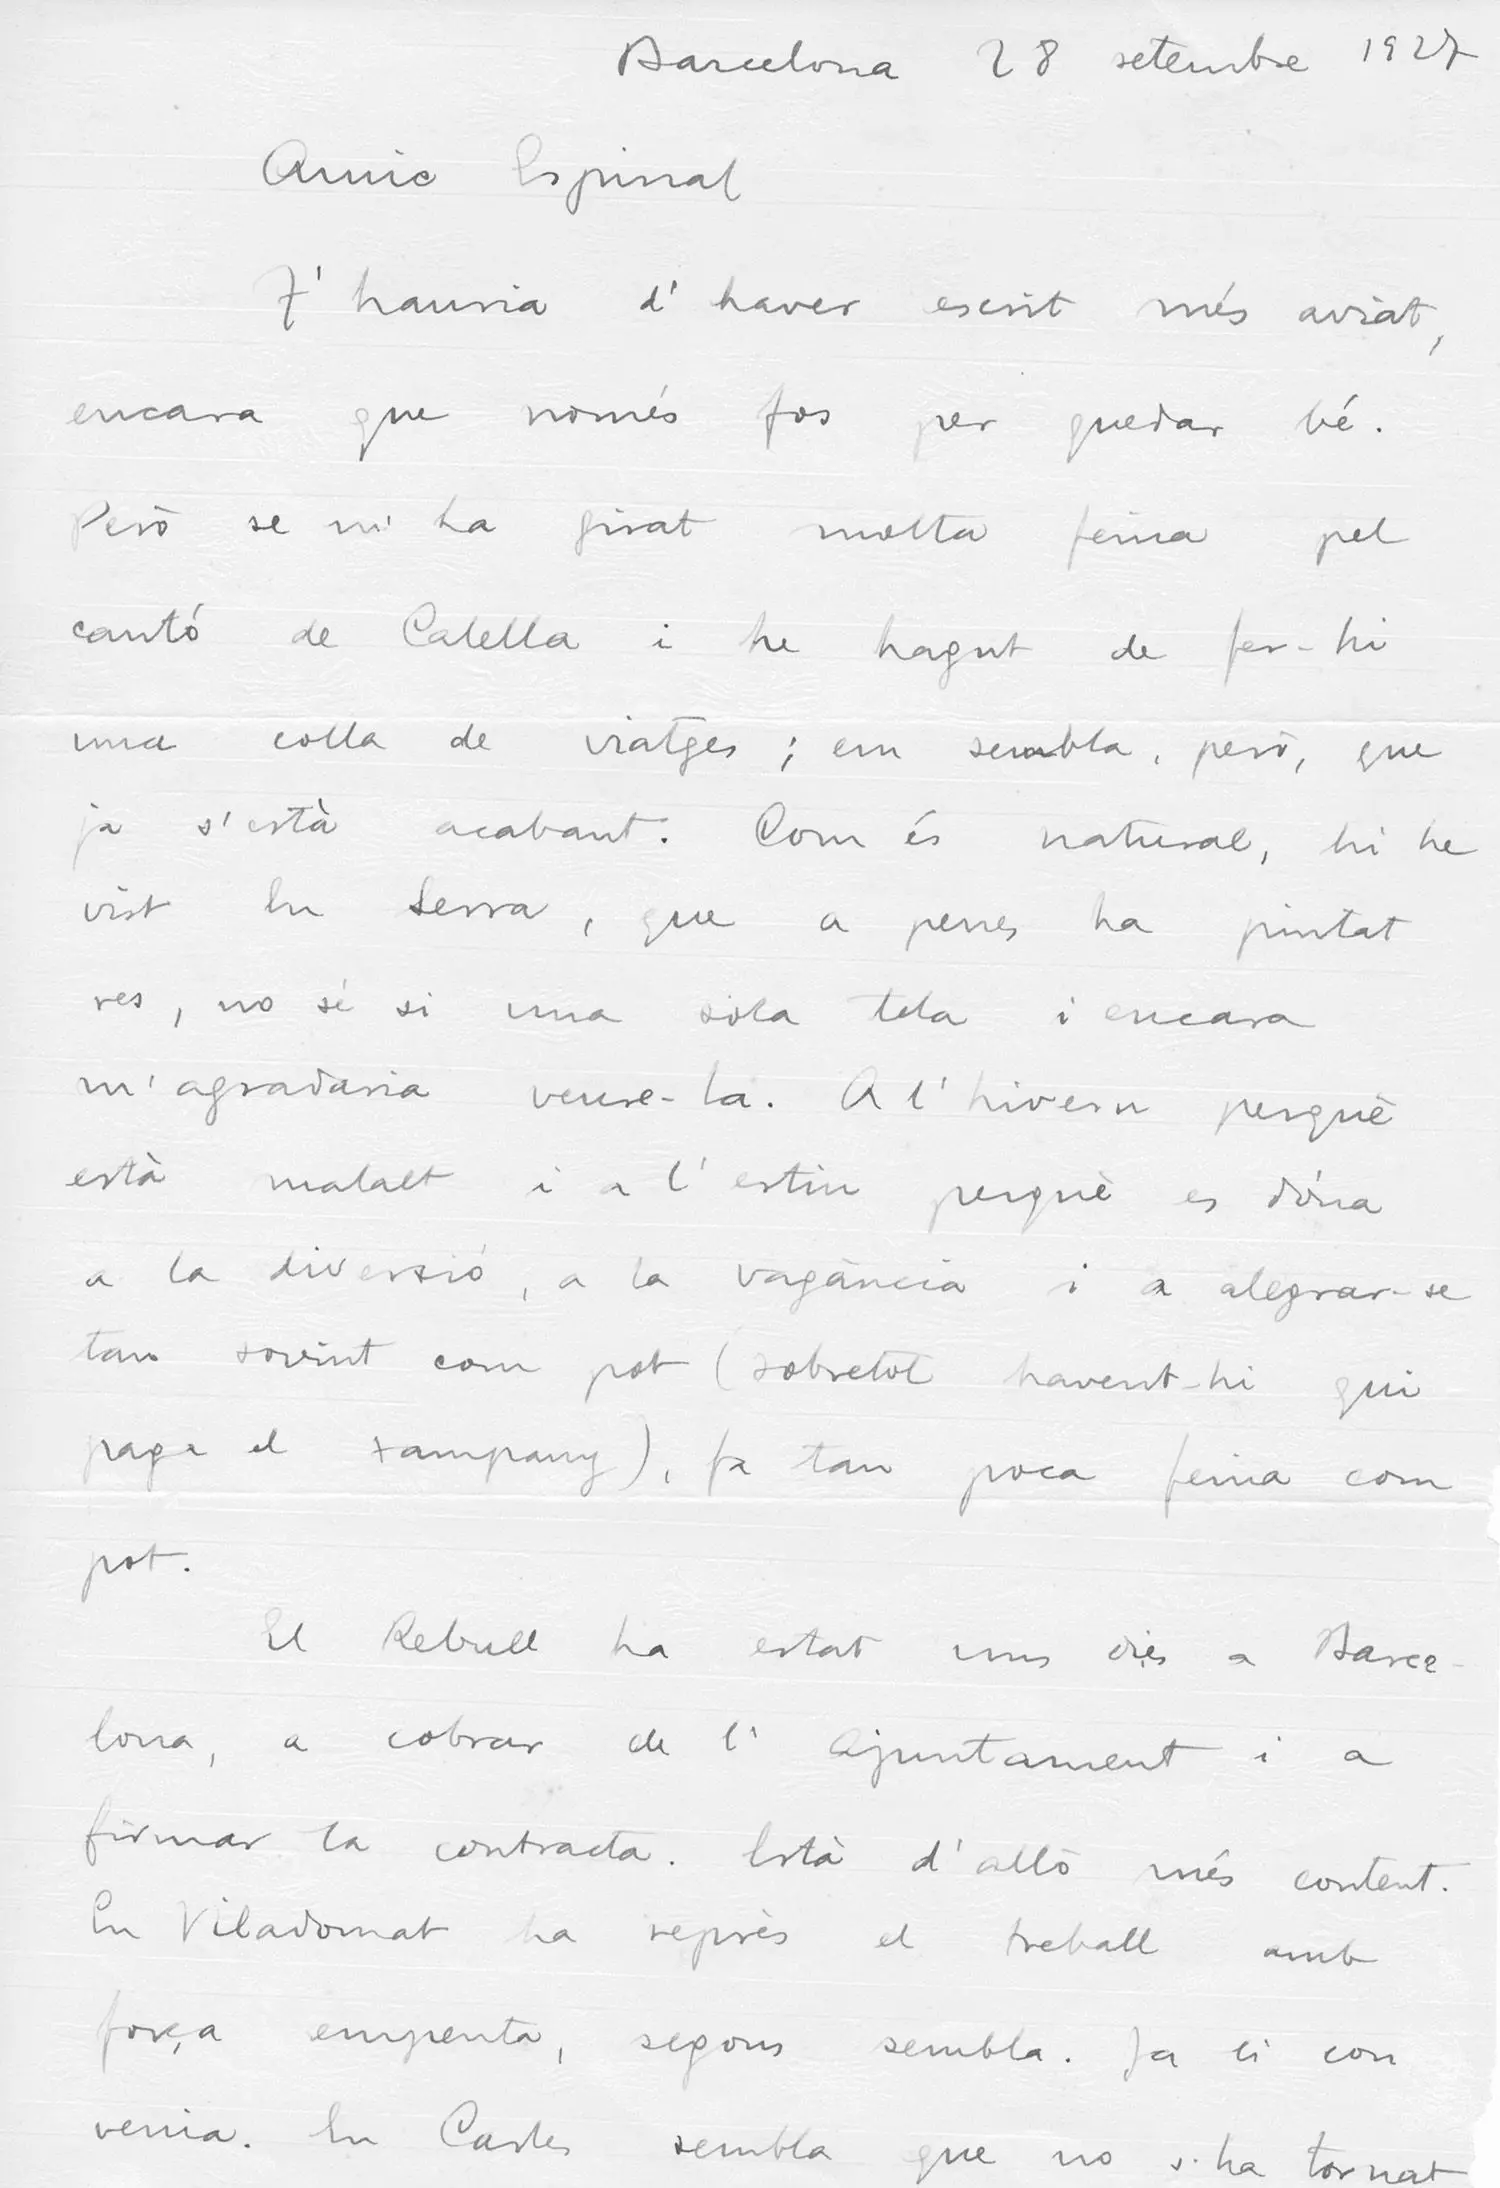 Barcelona 28 setembre 1927
Amic Espinal
T'hauria d'haver escrit més aviat,
encara que només fos per quedar bé.
Però se m'ha girat molta feina pel
cantó de Calella i he hagut de fer-hi
una colla de viatges; em sembla, però, que
ja s'està acabant. Com és natural, hi he
vist En Serra, que a penes ha pintat
res, no sé si una sola tela i encara
m'agradaria veure-la. A l'hivern perquè
està malalt i a l'estiu perquè es dóna
a la diversió, a la vagància i a alegrar-se
tan sovint com pot (sobretot havent-hi qui
paga el xampany), fa tan poca feina com
pot.
El Rebull ha estat uns dies a Barce-
lona, a cobrar de l'Ajuntament i a
firmar la contracta. Està d'allò més content.
En Viladomat ha reprès el treball amb
força empenta, segons sembla. Ja li con
venia. En Carles sembla que no s'ha tornat